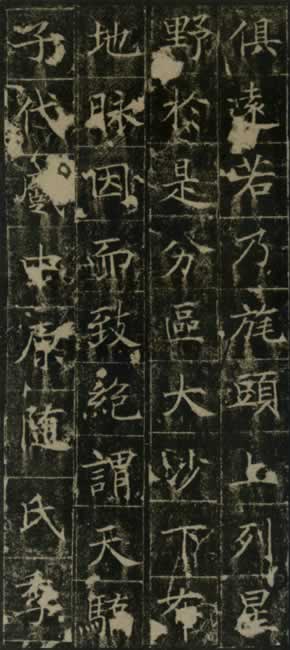 俱遠若乃旄頭上列星
野於是分區大沙下布
地脉因而致絕謂天驕
子代中原随氏季